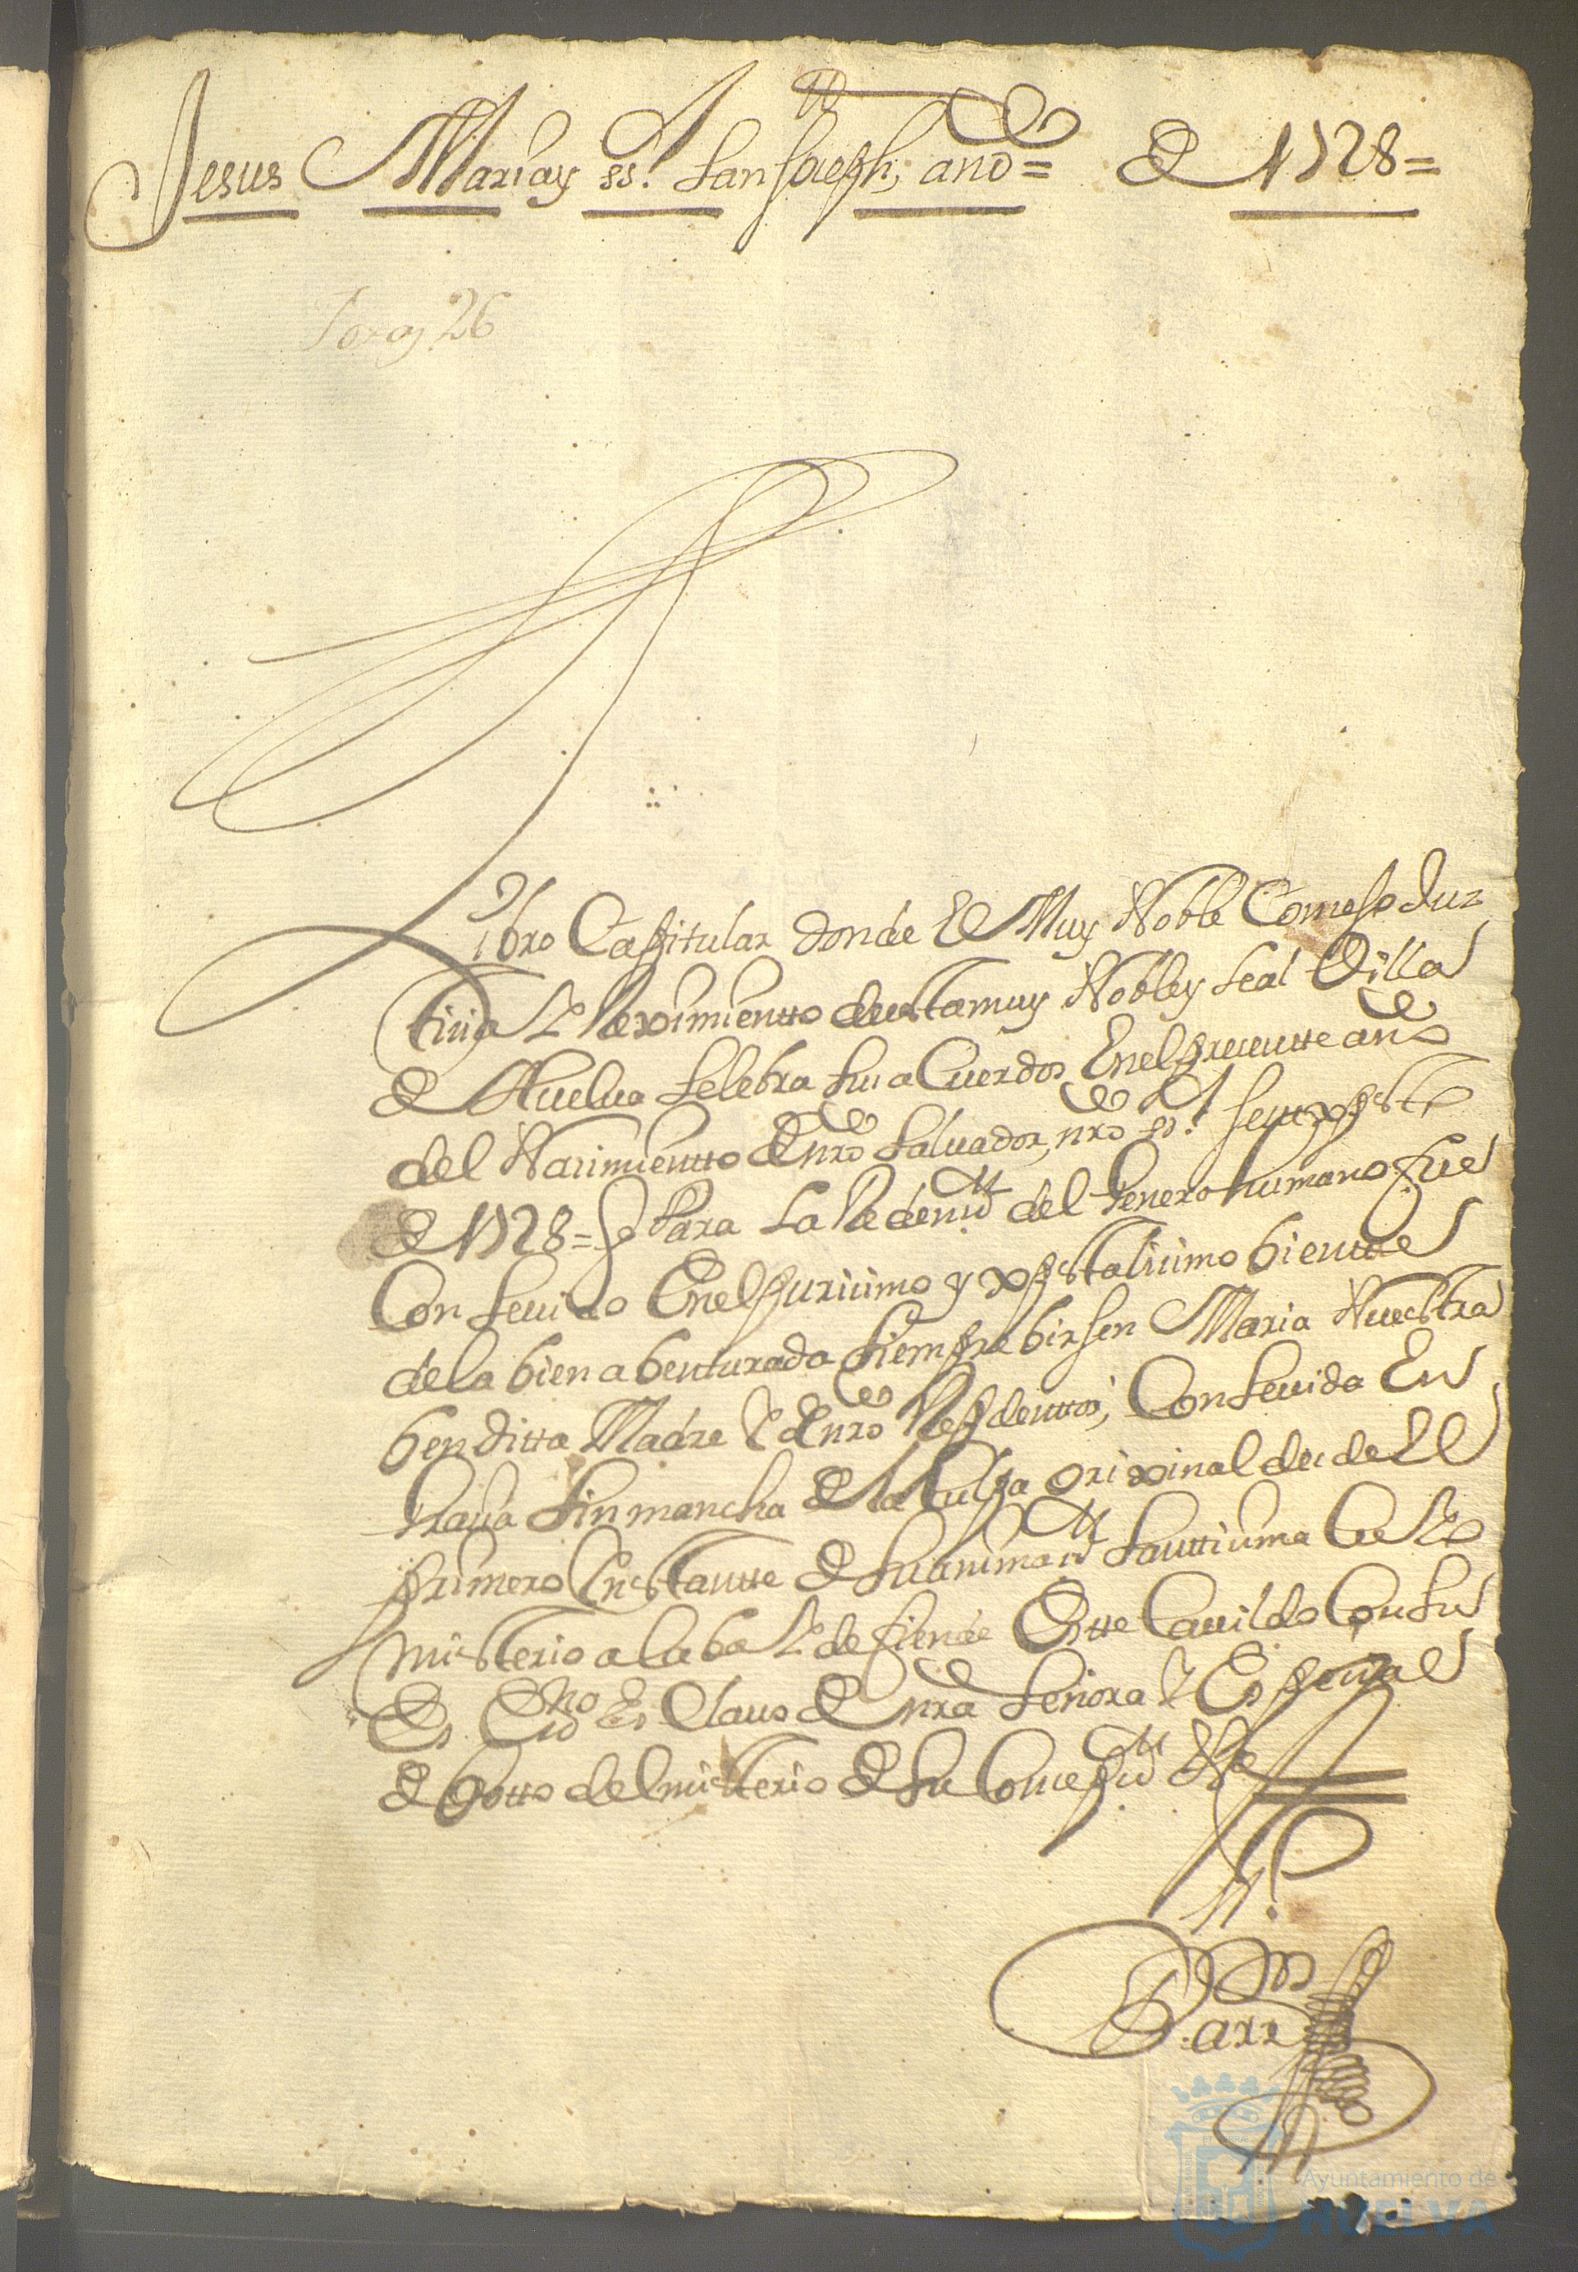 Jesus Maria y ss.r San Joseph, año = de 1728 =
26
Libro Capitular donde el Muy Noble Consejo Jus
ticia y Reximientto de esta muy Noble y Leal Villa
de Huelva selebra sus aCuerdos En el presentte año
del Nacimientto de nro Salvador, nro ss.r Jesuxpsto
de 1728 = q Para La Redenzon del Genero humano fue
Consevido En el purisimo y xpstalisimo bientre
de la bien abenturada siempre birjen Maria Nuestra
benditta Madre y de nro Rep dentto; Consevida En
Grasia sin mancha de la Culpa orixinal desde el
primero Instantte de su animazon santtisima Cuyo
misterio alaba y defiende Estte Cavildo Con su
Es.no Es Clavo de nra Señora y Espesial
debotto del misterio de su Consepzon
Ayuntamiento de
HUELVA